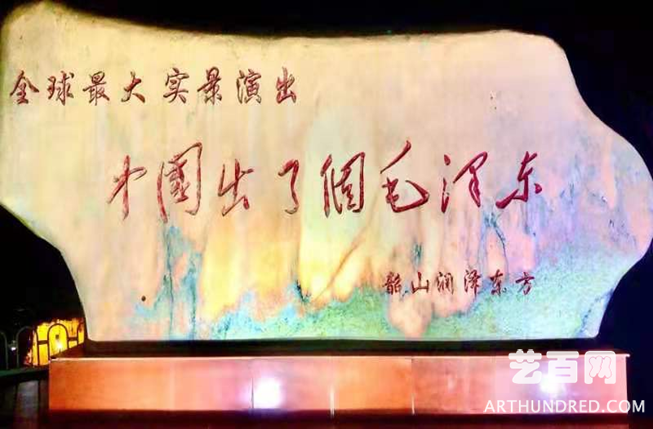 全球最大实景演出
中國出了個毛泽东
韶山润泽东方
艺百网
ARTHUNDRED.COM